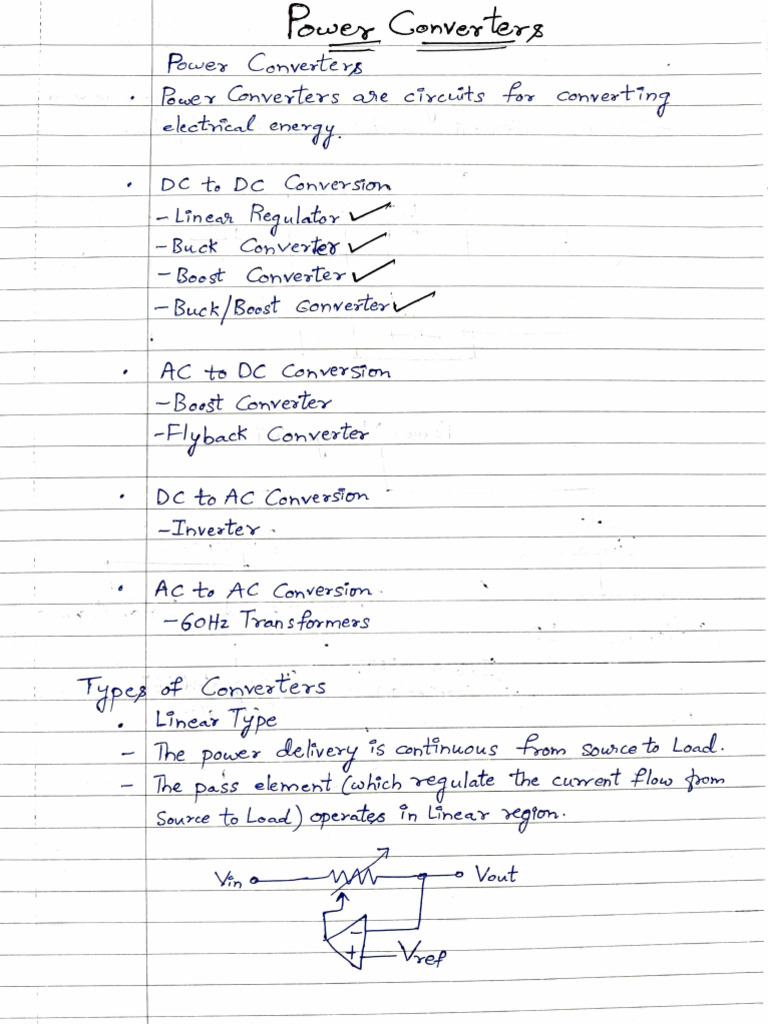 Power Converters
Power Converters
• Power Converters are circuits for converting
electrical energy.
• DC to DC Conversion
- Linear Regulator ✓
- Buck Converter ✓
- Boost Converter ✓
- Buck/Boost Converter ✓
• AC to DC Conversion
- Boost Converter
- Flyback Converter
• DC to AC Conversion
- Inverter.
• AC to AC Conversion.
- 60Hz Transformers
Types of Converters
• Linear Type
- The power delivery is continuous from source to Load.
- The pass element (which regulate the current flow from
Source to Load) operates in Linear region.
Vin Vout
-
+ Vref